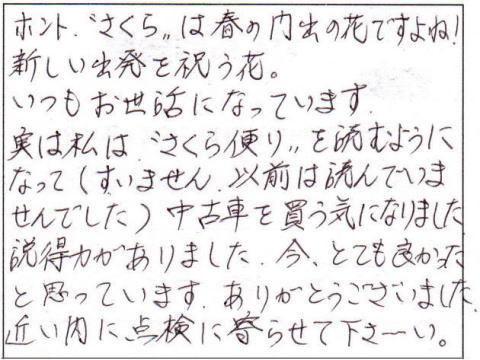 ホント、“さくら„は春の門出の花ですよね!
新しい出発を祝う花。
いつもお世話になっています.
実は私は、“さくら便り„を読むように
なって(すいません.以前は読んでいま
せんでした)中古車を買う気になりました
説得力がありました.今、とても良かった
と思っています.ありがとうございました.
近い内に点検に寄らせて下さ〜い。